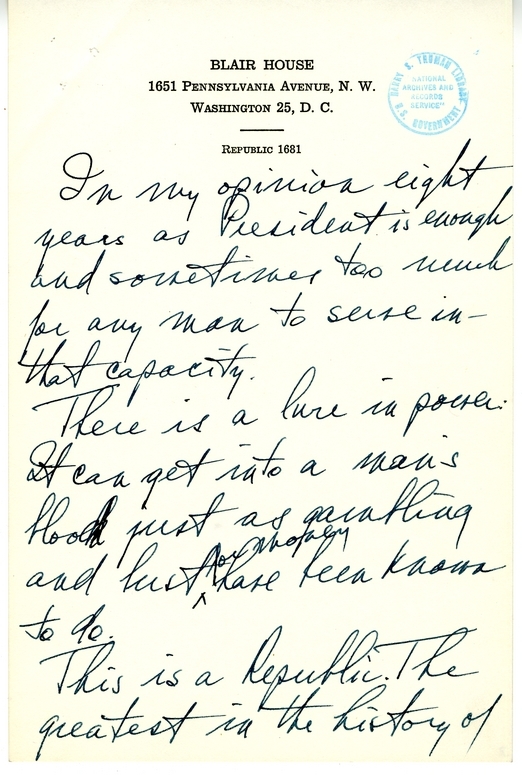 BLAIR HOUSE
1651 PENNSYLVANIA AVENUE, N. W.
WASHINGTON 25, D. C.
REPUBLIC 1681
HARRY S. TRUMAN LIBRARY
NATIONAL
ARCHIVES AND
RECORDS
SERVICE
U.S. GOVERNMENT
In my opinion eight
years as President is enough
and sometimes too much
for any man to serve in
that capacity.
There is a lure in power.
It can get into a man's
blood just as gambling
for money
and lust have been known
to do.
This is a Republic. The
greatest in the history of